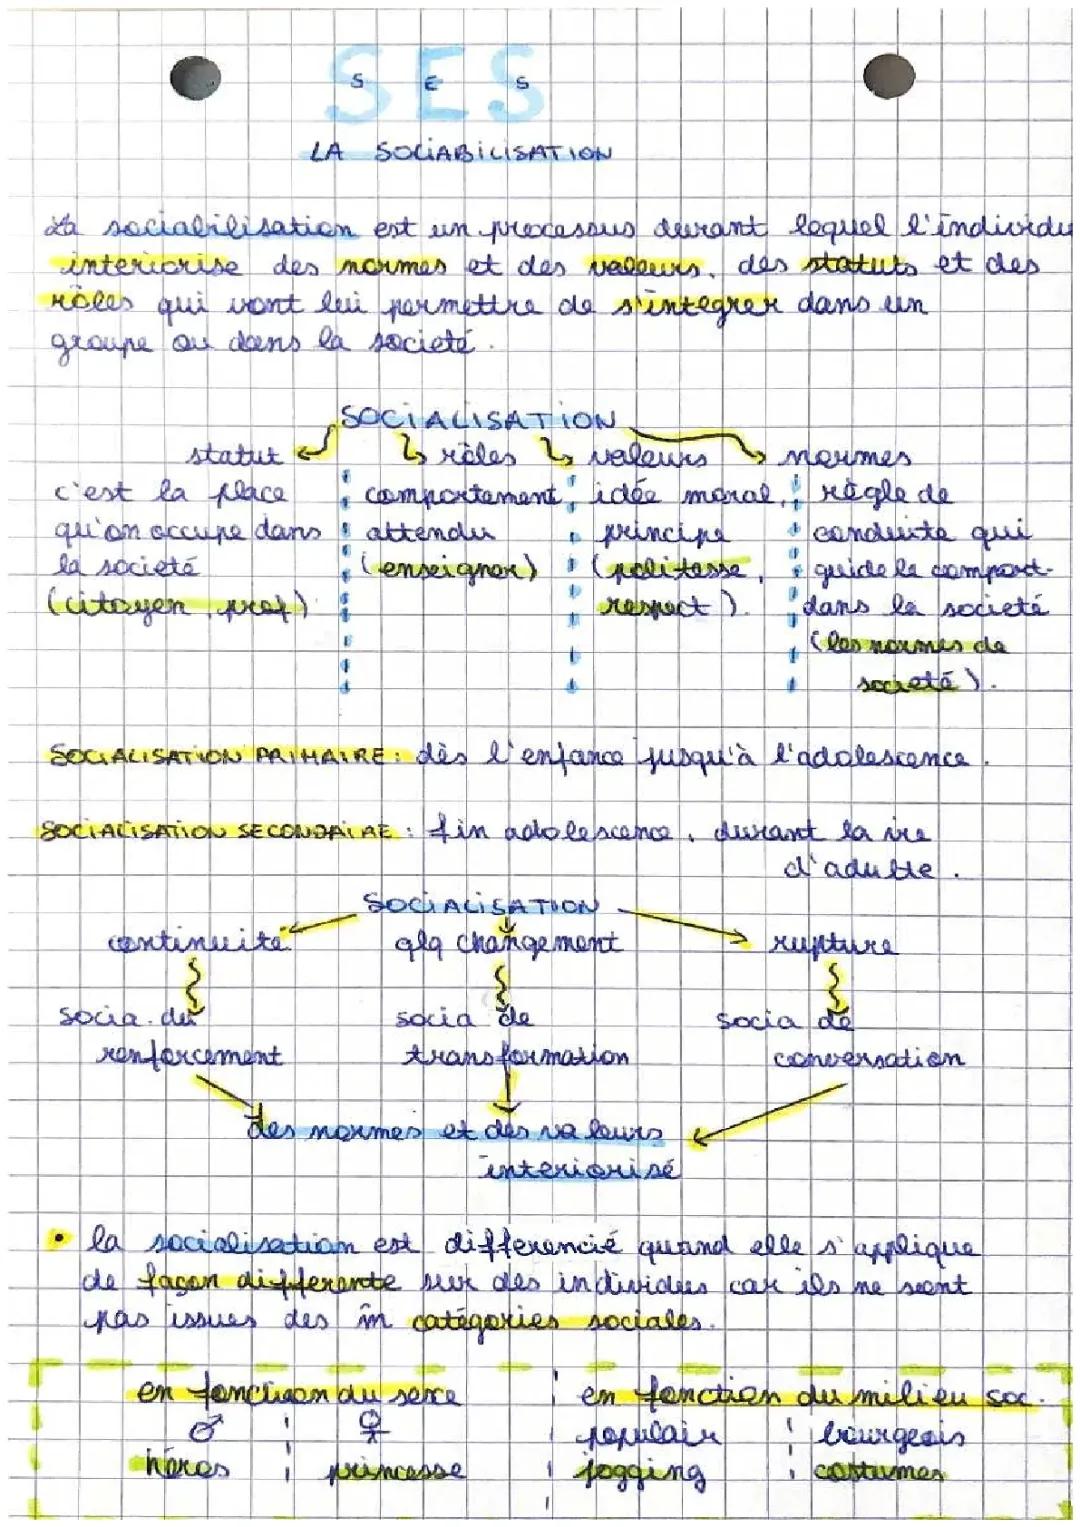 SES
S E S
LA SOCIABILISATION
La sociabilisation est un processus durant lequel l'individu
interiorise des normes et des valeurs, des statuts et des
rôles qui vont lui permettre de s'intégrer dans un
groupe ou dans la societé.
SOCIALISATION
statut rôles valeurs normes
c'est la place comportement idée moral, règle de
qu'on occupe dans attendu principe conduite qui
la societé (enseigner) (politesse, guide le comport.
(citoyen, prof) respect). dans la societé
(les normes de
societé).
SOCIALISATION PRIMAIRE : dès l'enfance jusqu'à l'adolescence.
SOCIALISATION SECONDAIRE : fin adolescence, durant la vie
d'adulte.
SOCIALISATION
continuité qlq changement rupture
socia. du socia de socia de
renforcement transformation conversation
des normes et des valeurs
interiorisé
• la socialisation est differencié quand elle s'applique
de façon differente sur des individus car ils ne sont
pas issues des m̂ catégories sociales.
en fonction du sexe en fonction du milieu soc.
♂ ♀ populair bourgeois
héros princesse jogging costumes